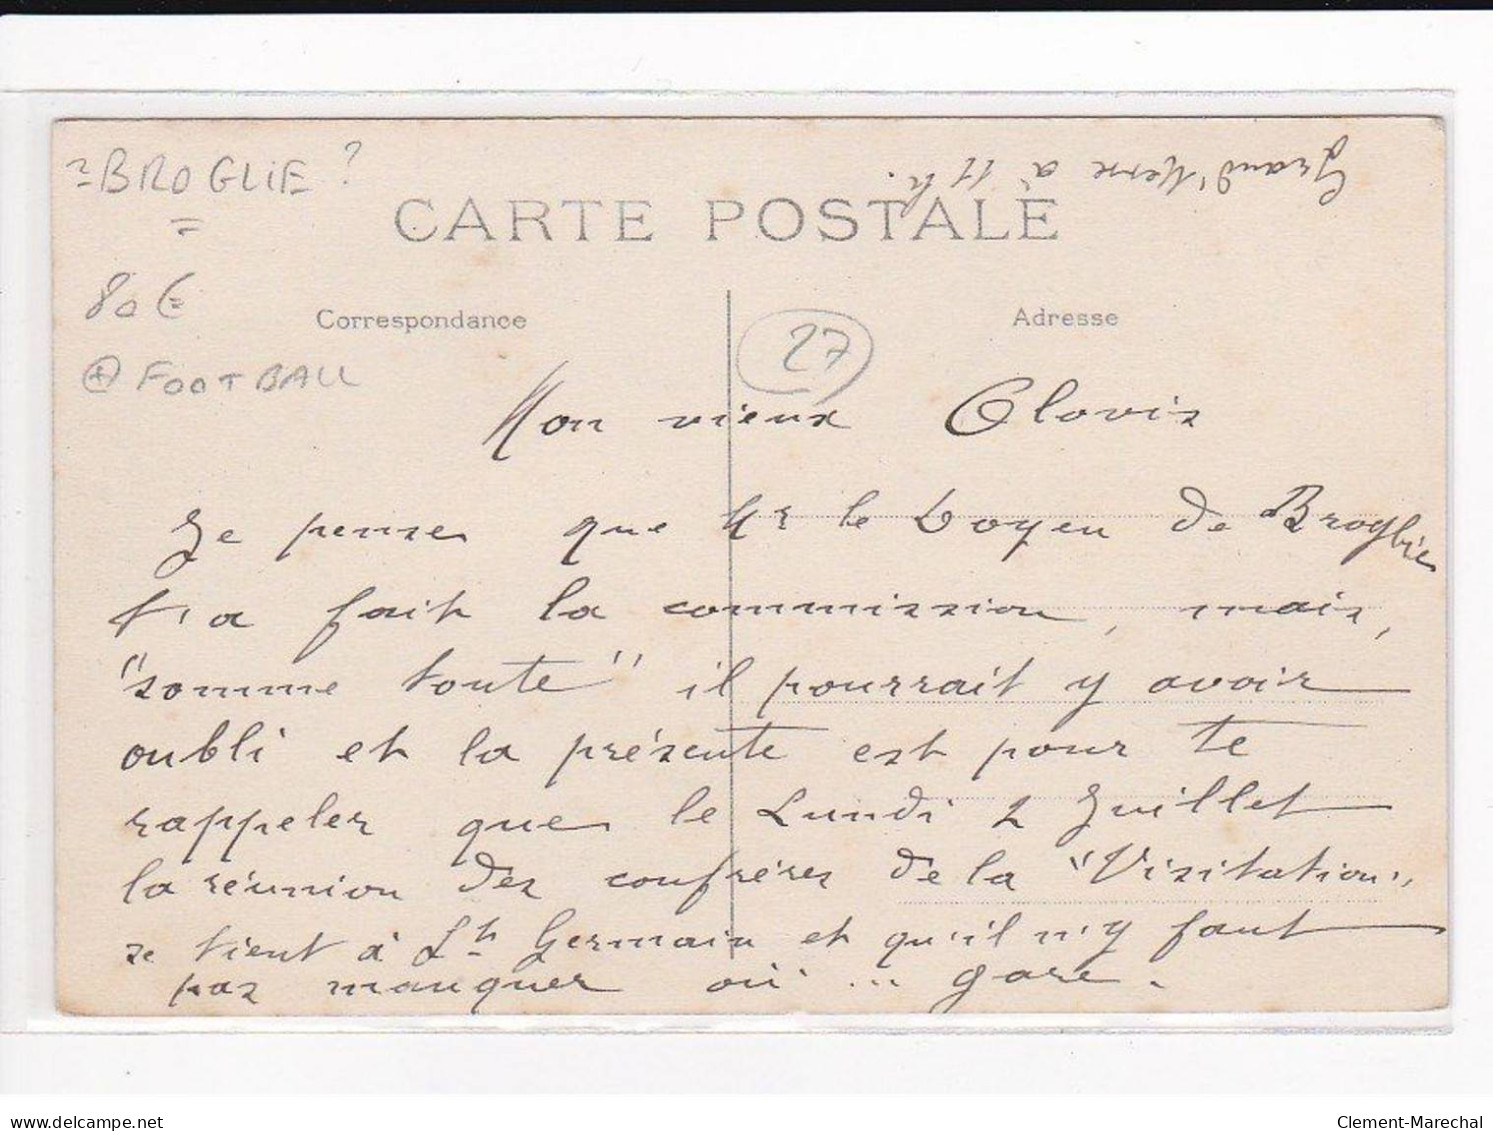 =BROGLIE ?
=
Grand'Messe à 11 h.
CARTE POSTALE
80€
Correspondance
Adresse
27
+ FOOTBALL
Mon vieux Clovis
Je pense que Mr le Doyen de Broglie
t'a fait la commission, mais,
"somme toute" il pourrait y avoir
oubli et la présente est pour te
rappeler que le Lundi 2 Juillet
la réunion des confrères de la "Visitation"
se tient à St Germain et qu'il n'y faut
pas manquer où ... gare.
delcampe.net
Clement-Marechal